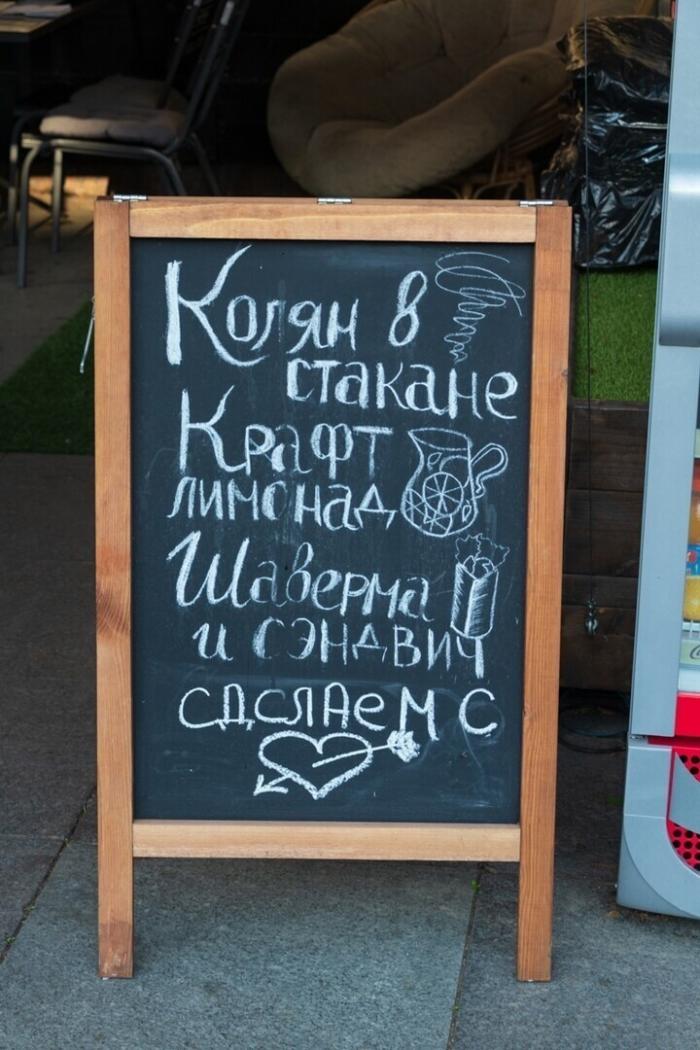 Колян в
стакане
Крафт
лимонад
Шаверма
и сэндвич
сделаем с